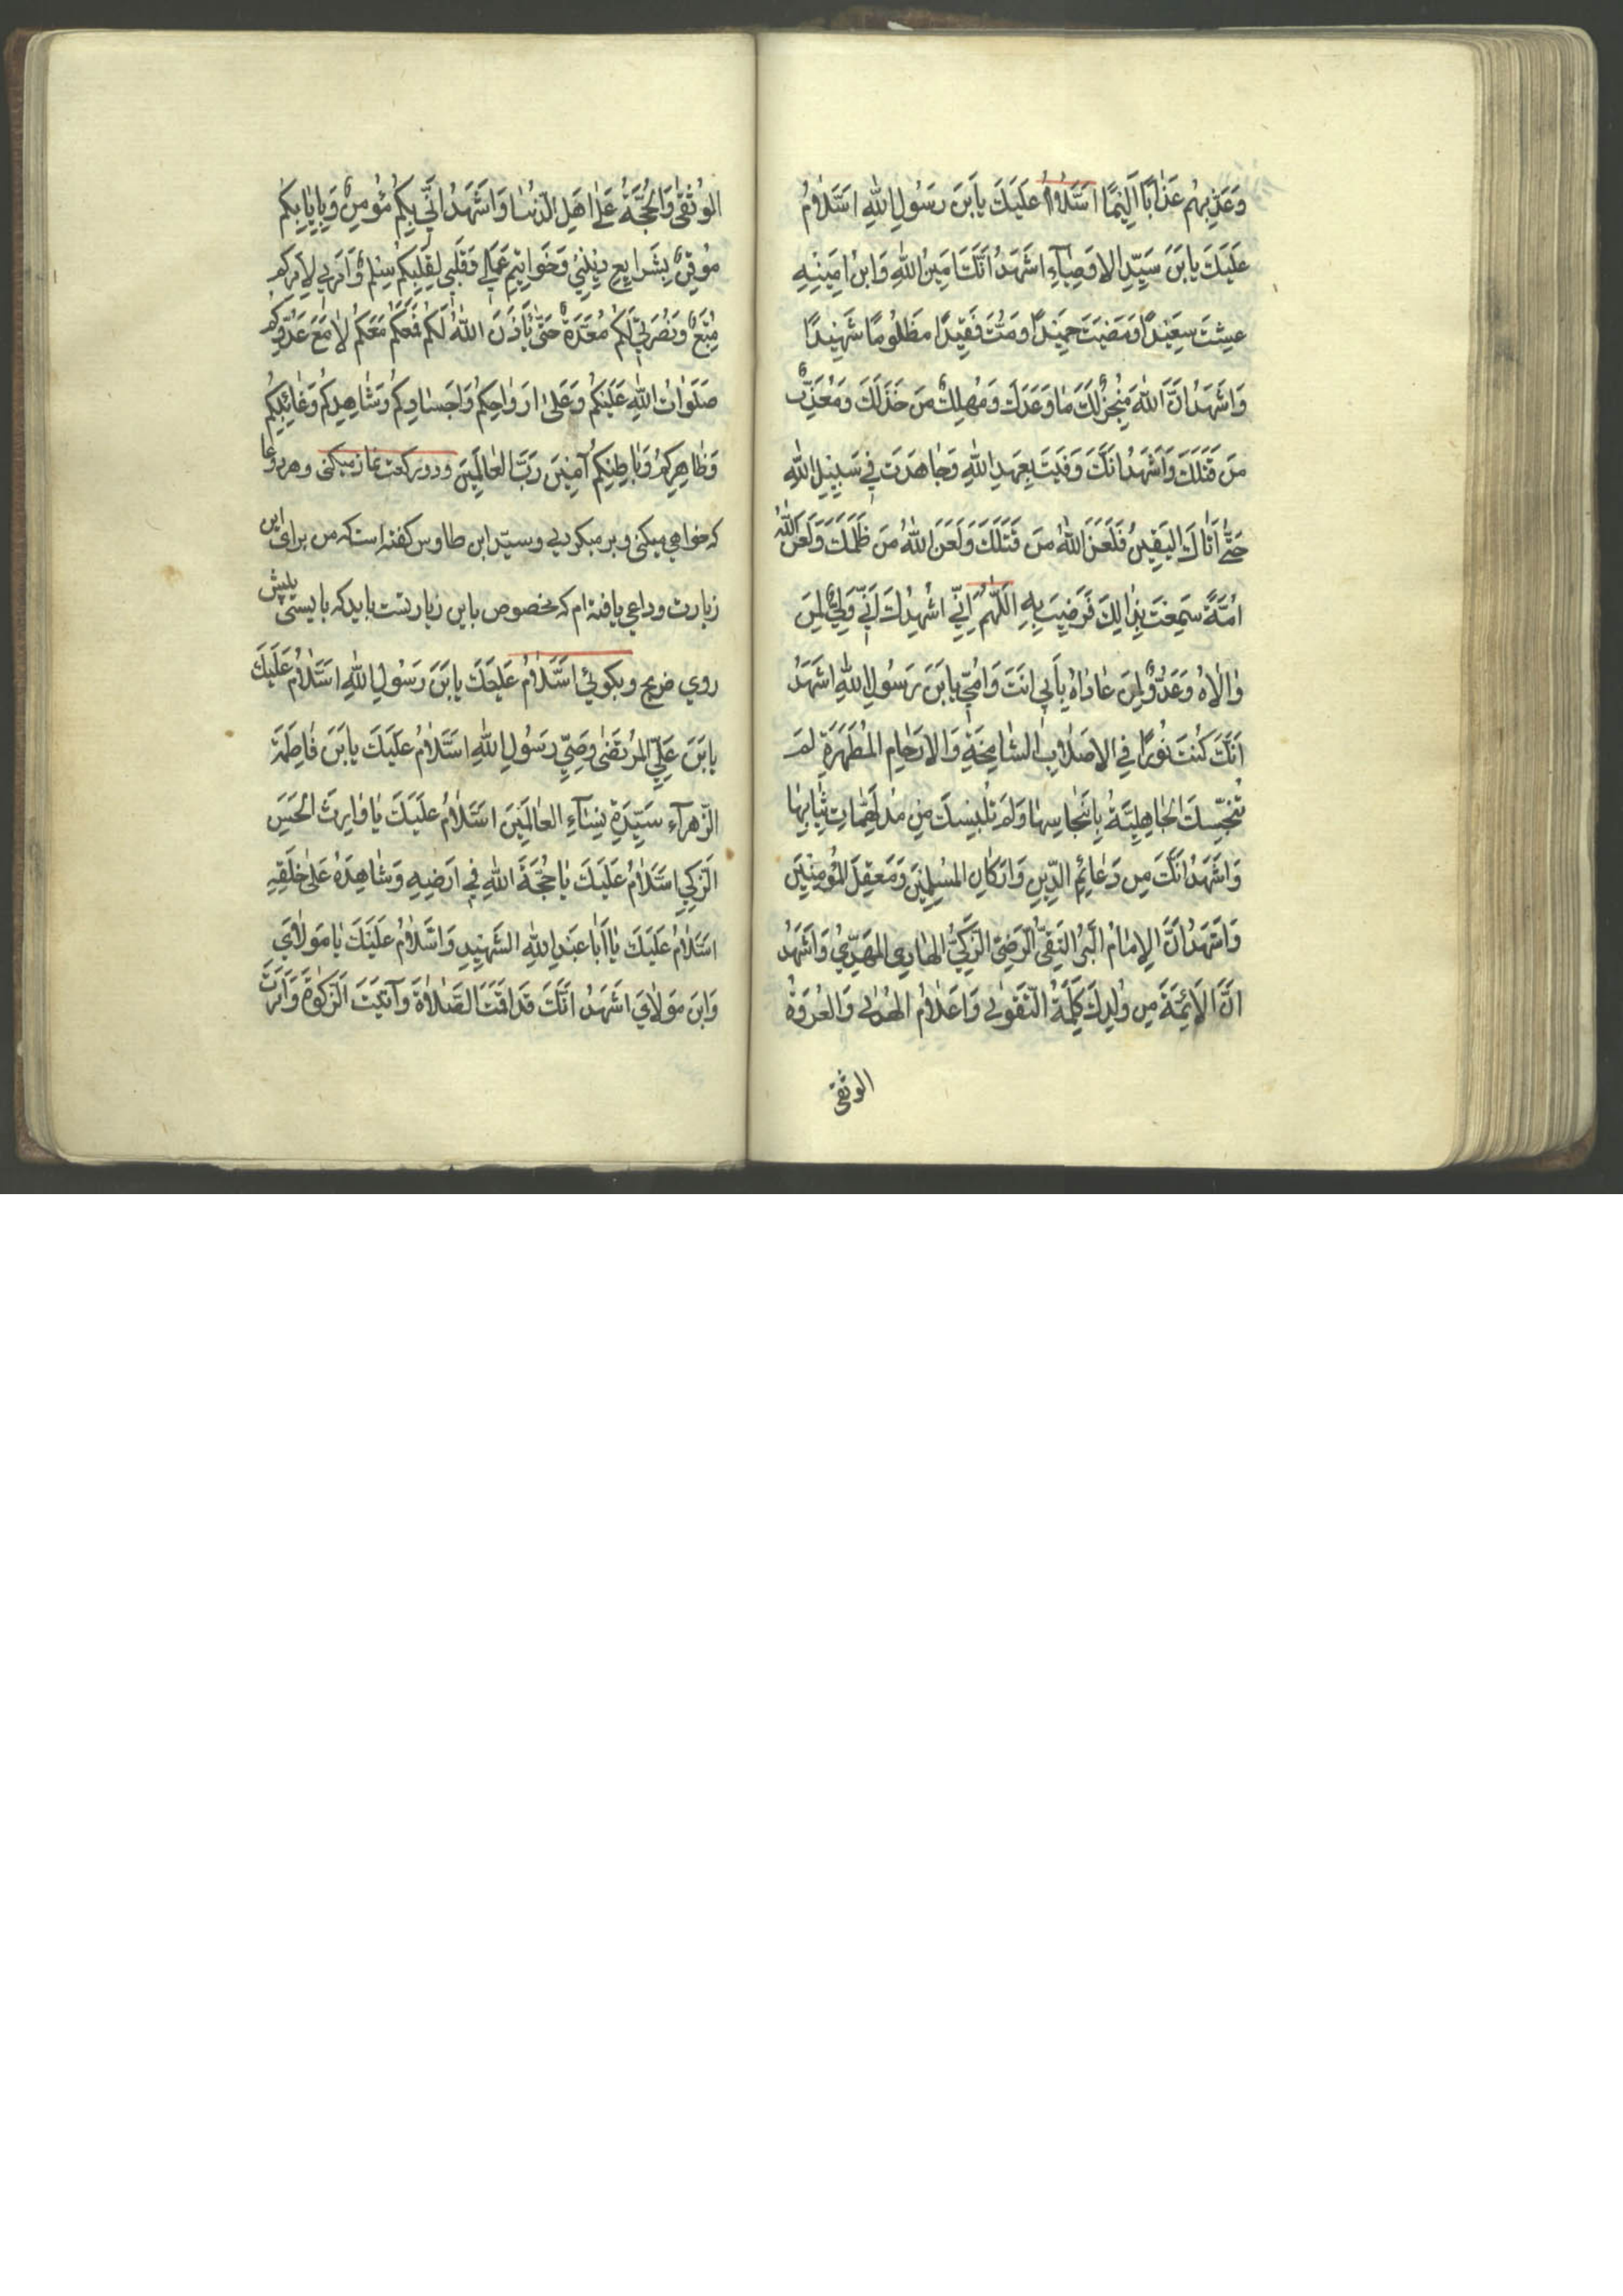 وَعَذِّبْهُم عَذٰابًا اَلِيْمًا اَسَّلٰامُ عَلَيَكَ يابَنَ رَسُولِ اللهِ اسَّلٰامُ
عَلَيَكَ يابَنَ سَيِّدِ الاوَصِيٰآءِ اشَهَدُ انَّكَ اَمَيِنُ اللهِ وَابنُ امِيَنِهِ
عِشتَ سَعِيَدًا وَمَضَيَتَ حَمِيَدًا وَمُتَّ فَقِيَدًا مَظلُومًا شَهِيَدًا
وَاشَهَدُ انَّ اللهَ مُنجِزٌ لَكَ مَا وَعَدَكَ وَمُهلِكٌ مَن خَذَلَكَ وَمُعَذِّبٌ
مَن قَتَلَكَ وَاَشَهَدُ انَّكَ وَفَيَتَ بِعَهدِ اللهِ وَجٰاهَدتَ فِي سَبِيَلِ اللهِ
حَتّٰى اَتٰاكَ اليَقِيَنُ فَلَعَنَ اللهُ مَن قَتَلَكَ وَلَعَنَ اللهُ مَن ظَلَمَكَ وَلَعَنَ اللهُ
امَّةً سَمِعَتَ بِذٰالِكَ فَرَضِيَتَ بِهِ اَللّٰهُمَّ اِنِّي اشْهِدُكَ اَنِّي وَلِيٌّ لِمَن
وٰالٰاهُ وَعَدُوٌّ لِمَن عٰادٰاهُ بِاَبِي انَتَ وَامِّي يابَنَ رَسُولِ اللهِ اشَهَدُ
اَنَّكَ كُنتَ نُورًا فِي الاصَلٰابِ الشّٰامِخَةِ وَالارَحٰامِ المُطَهَّرَةِ لَم
تُنَجِّسكَ الجٰاهِلِيَّةُ بِاَنجٰاسِهٰا وَلَم تُلبِسكَ مِن مُدلَهِمّٰاتِ ثِيٰابِهٰا
وَاَشَهَدُ انَّكَ مِن دَعٰائِمِ الدِّينِ وَاركٰانِ المُسلِمِيَنَ وَمَعقِلِ المُؤمِنِيَن
وَاَشَهَدُ انَّكَ الاِمٰامُ البَرُّ التَّقِيُّ الرَّضِيُّ الزَّكِيُّ الهٰادِي المَهدِيُّ وَاَشَهَدُ
انَّ الاَئِمَّةَ مِن وُلدِكَ كَلِمَةُ التَّقوٰى وَاعَلٰامُ الهُدٰى وَالعُروَةُ
الوثقى
الوُثقٰى وَالحُجَّةُ عَلٰى اهَلِ الدُّنيٰا وَاشَهَدُ انِّي بِكُم مُؤمِنٌ وَبِاِيٰابِكُم
مُوقِنٌ بِشَرايِعِ دِيَنِي وَخَوٰاتِيَمِ عَمَلِي وَقَلَبِي لِقَلبِكُم سِلمٌ وَاَمرِي لِاَمرِكُم
مُتَّبِعٌ وَنُصرَتِي لَكُم مُعَدَّةٌ حَتّٰى يَأذَنَ اللهُ لَكُم فَمَعَكُم مَعَكُم لٰا مَعَ عَدُوِّكُم
صَلَوٰاتُ اللهِ عَلَيَكُم وَعَلٰى ارَوٰاحِكُم وَاجَسٰادِكُم وَشٰاهِدِكُم وَغٰائِبِكُم
وَظٰاهِرِكُم وَبٰاطِنِكُم آمِيَنَ رَبَّ العٰالَمِيَن ودو ركعت نماز ميكنى وهر دعا
كه خواهي ميكني وبر ميكردي وسيد ابن طاوس كفته است كه من براى اين
زيارت وداعي يافته ام كه مخصوص باين زيارتست بايد كه بايستى پيش
روي ضريح وبكوئي اسَّلٰامُ عَلَيَكَ يابَنَ رَسُولِ اللهِ اسَّلٰامُ عَلَيَكَ
يابَنَ عَلِيٍّ المُرتَضٰى وَصِيِّ رَسُولِ اللهِ اسَّلٰامُ عَلَيَكَ يابَنَ فٰاطِمَةَ
الزَّهرآءِ سَيِّدَةِ نِسٰاءِ العٰالَمِيَنَ اسَّلٰامُ عَلَيَكَ يٰا وٰارِثَ الحَسَنِ
الزَّكِيِّ اسَّلٰامُ عَلَيَكَ يٰا حُجَّةَ اللهِ فِي ارَضِهِ وَشٰاهِدَهُ عَلٰى خَلقِهِ
اسَّلٰامُ عَلَيَكَ يٰا اَبٰا عَبدِ اللهِ الشَّهِيَدِ وَاسَّلٰامُ عَلَيَكَ يٰا مَولٰايَ
وَابنَ مَولٰايَ اشَهَدُ انَّكَ قَد اقَمتَ الصَّلٰاةَ وَآتَيَتَ الزَّكٰوةَ وَاَمَرتَ